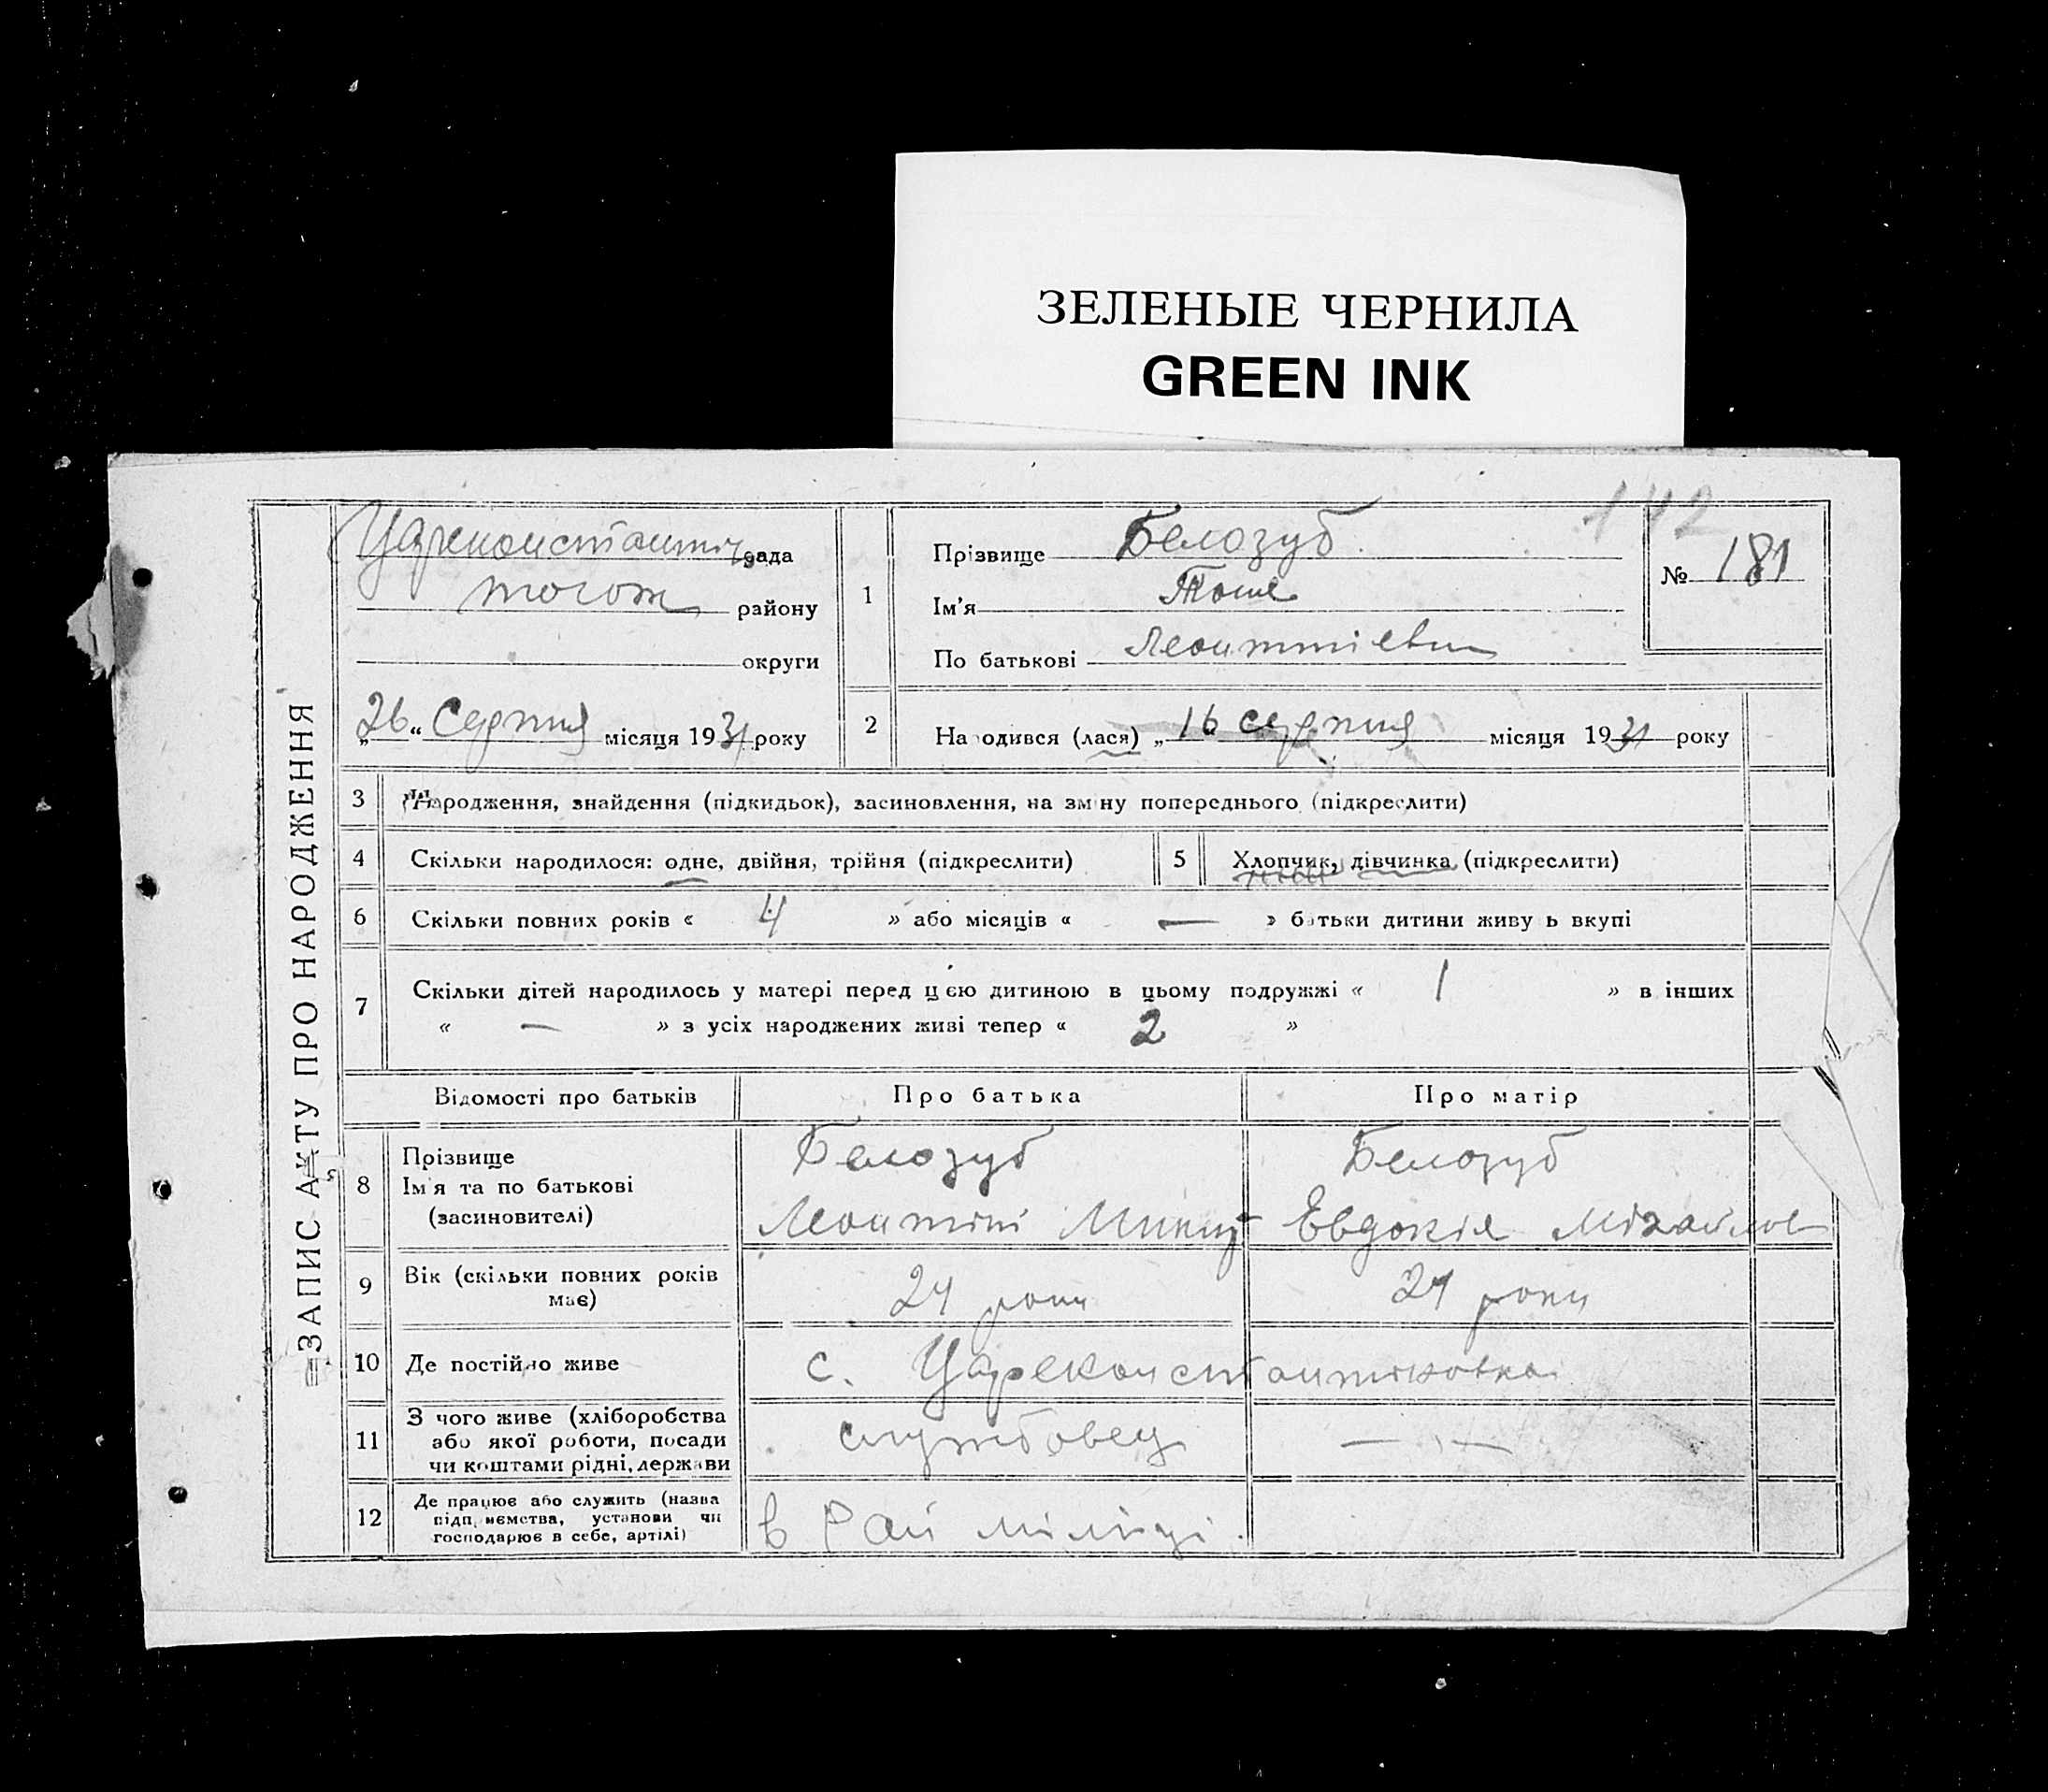 ЗЕЛЕНЫЕ ЧЕРНИЛА
GREEN INK
142
ЗАПИС АКТУ ПРО НАРОДЖЕННЯ
Цареконстантин рада
тогож району
округи
„26“ Серпня місяця 1931 року
1
Прізвище Белозуб
Ім'я Тоня
По батькові Леонтіевн
№ 181
2 Народився (лася) „16 серпня місяця 1931 року
3 Народження, знайдення (підкидьок), засиновлення, на зміну попереднього (підкреслити)
4 Скільки народилося: одне, двійня, трійня (підкреслити)
5 Хлопчик, дівчинка (підкреслити)
6 Скільки повних років « 4 » або місяців « — » батьки дитини живу ь вкупі
7 Скільки дітей народилось у матері перед цією дитиною в цьому подружжі « 1 » в інших
« — » з усіх народжених живі тепер « 2 »
Відомості про батьків Про батька Про матір
8 Прізвище
Ім'я та по батькові
(засиновителі)
Белозуб
Леонтій Микит
Белозуб
Евдокія Міхайлов
9 Вік (скільки повних років
має)
24 роки
24 роки
10 Де постійно живе с. Цареконстантиновка
11 З чого живе (хліборобства
або якої роботи, посади
чи коштами рідні, держави
службовец
— „ —
12 Де працює або служить (назва
підприємства, установи чи
господарює в себе, артілі)
в Рай міліції.